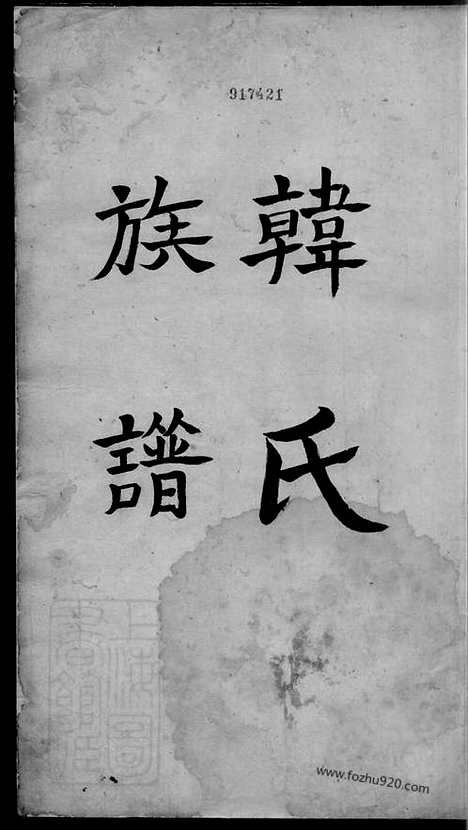 917421
韓氏
族譜
www.fozhu920.com